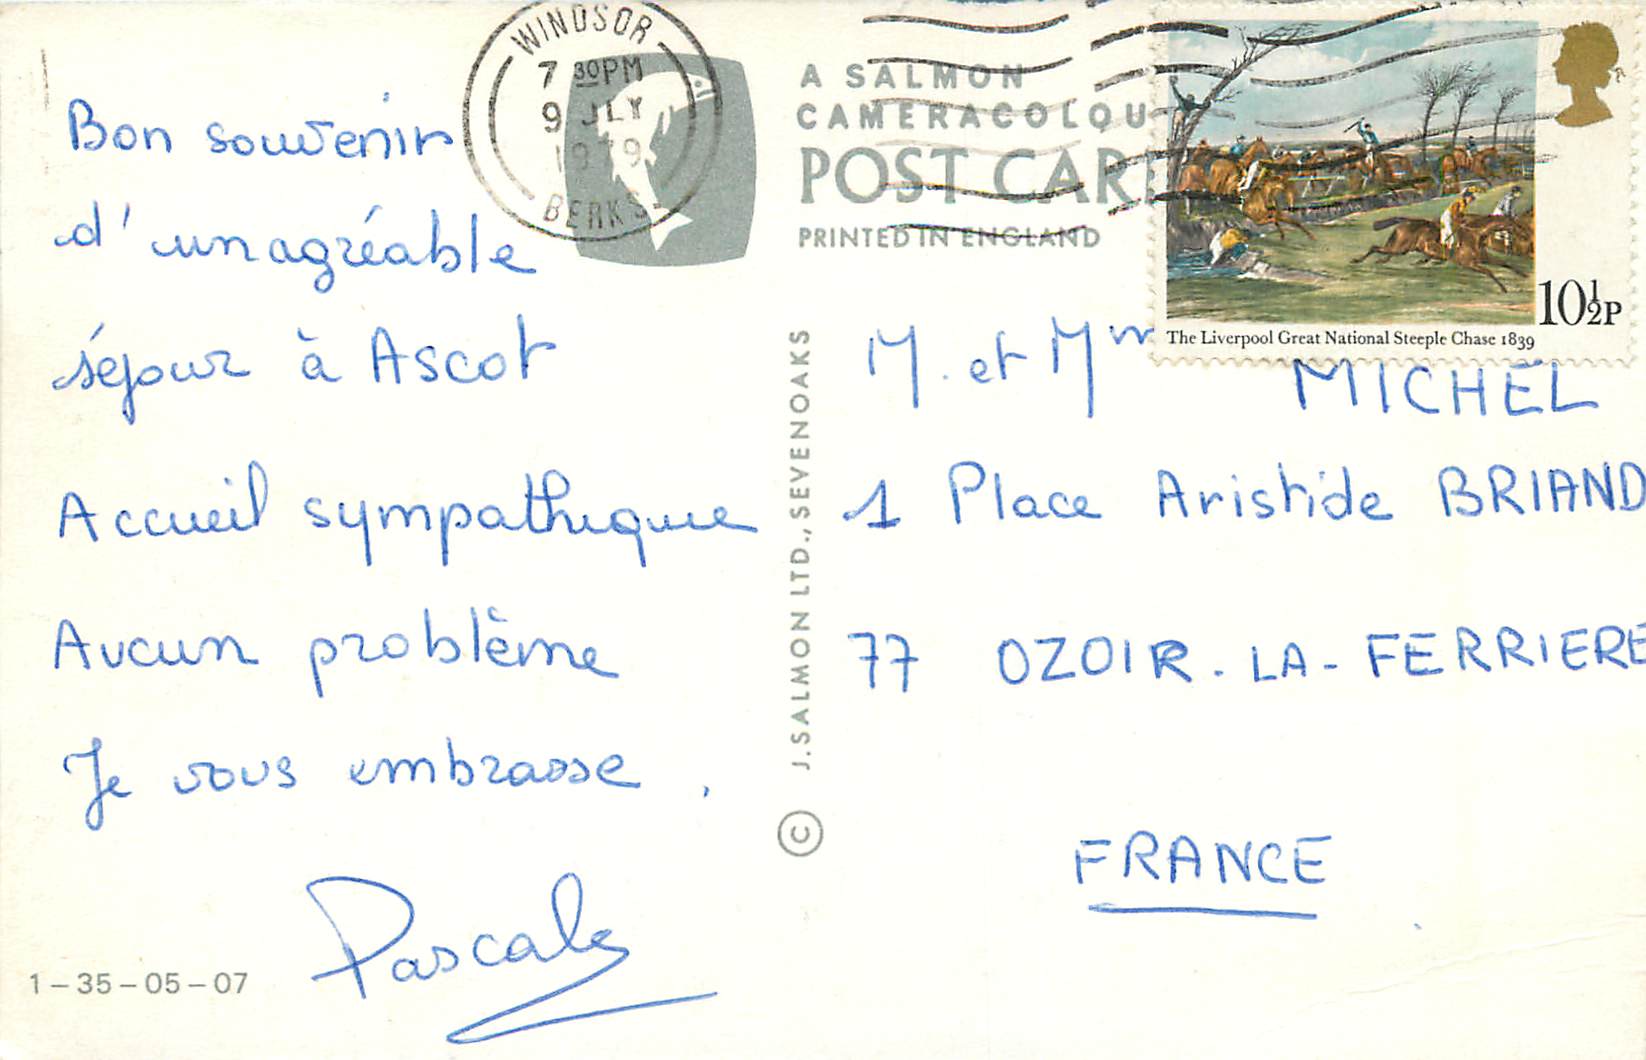 WINDSOR
7 30PM
9 JLY
1979
BERKS
A SALMON
CAMERACOLOU
POST CAR
PRINTED IN ENGLAND
10½P
The Liverpool Great National Steeple Chase 1839
Bon souvenir
d'un agréable
séjour à Ascot
Accueil sympathique
Aucun problème
Je vous embrasse.
Pascale
1-35-05-07
© J. SALMON LTD., SEVENOAKS
M. et Mm MICHEL
1 Place Aristide BRIAND
77 OZOIR-LA-FERRIERE
FRANCE